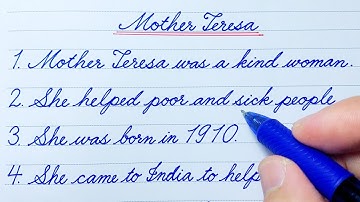 Mother Teresa
1. Mother Teresa was a kind woman.
2. She helped poor and sick people
3. She was born in 1910.
4. She came to India to help